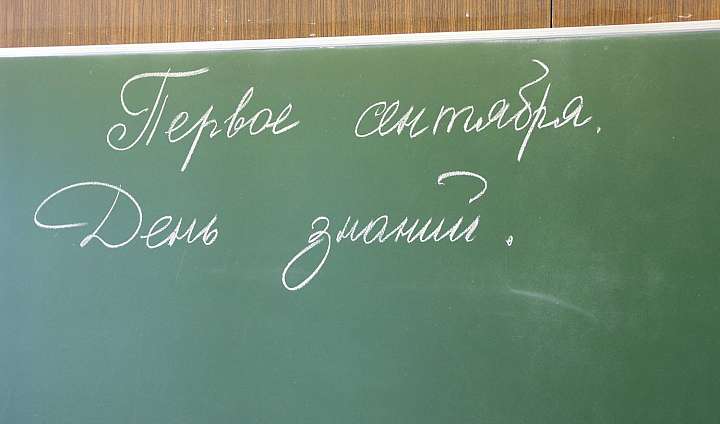 Первое сентября.
День знаний.